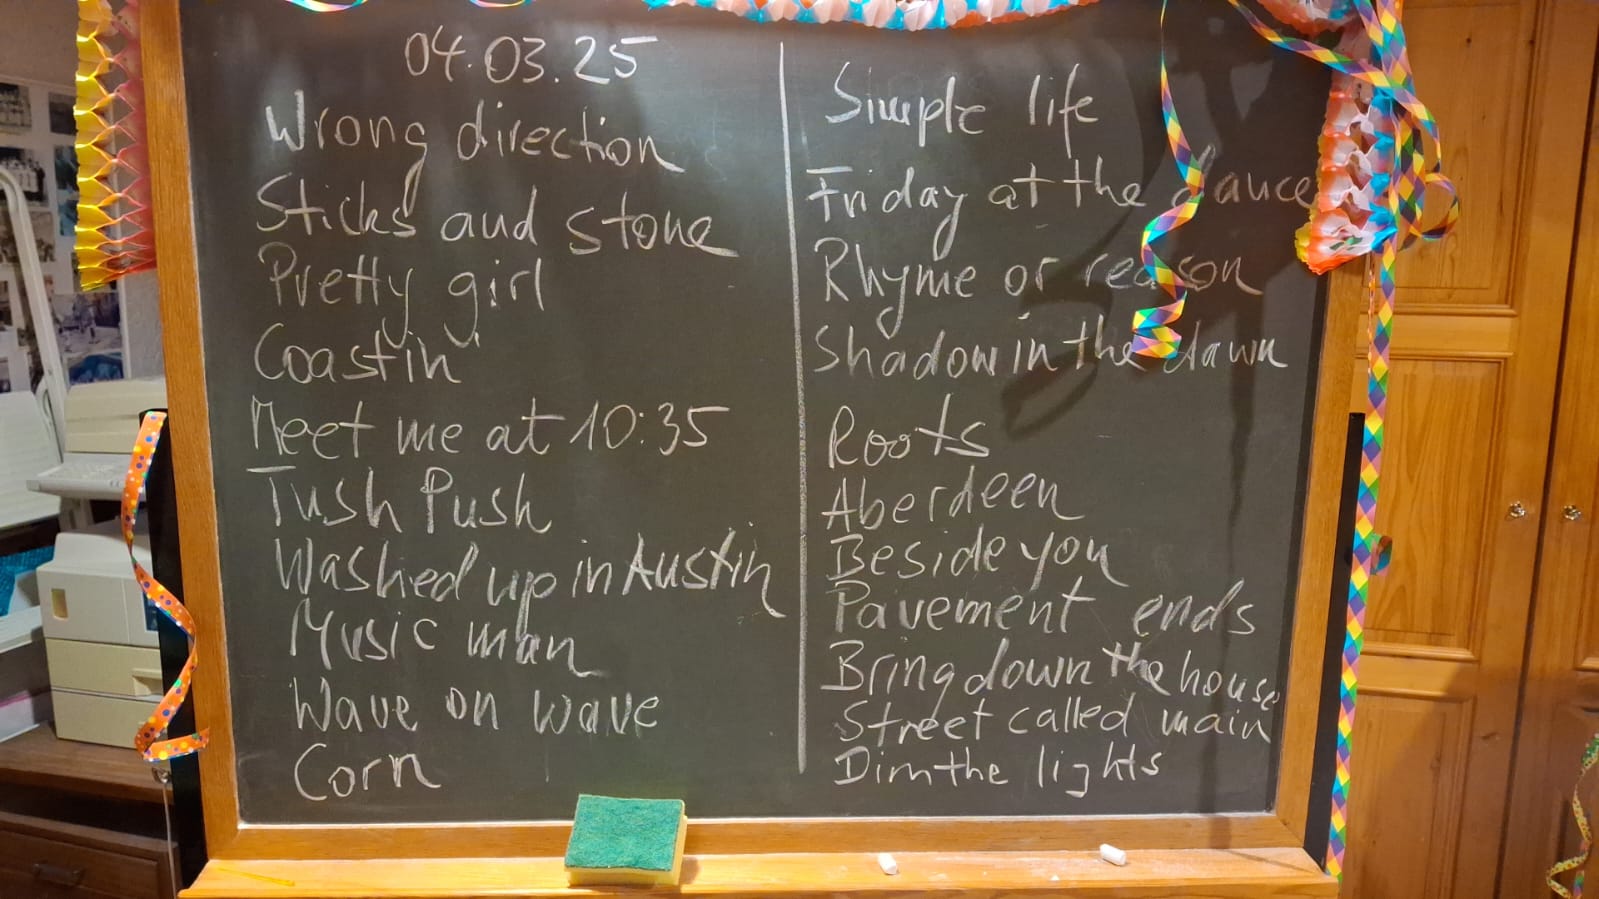 04.03.25
Wrong direction
Sticks and stone
Pretty girl
Coastin'
Meet me at 10:35
Tush Push
Washed up in Austin
Music man
Wave on wave
Corn
Simple life
Friday at the dance
Rhyme or reason
Shadow in the dawn
Roots
Aberdeen
Beside you
Pavement ends
Bring down the house
Street called main
Dim the lights